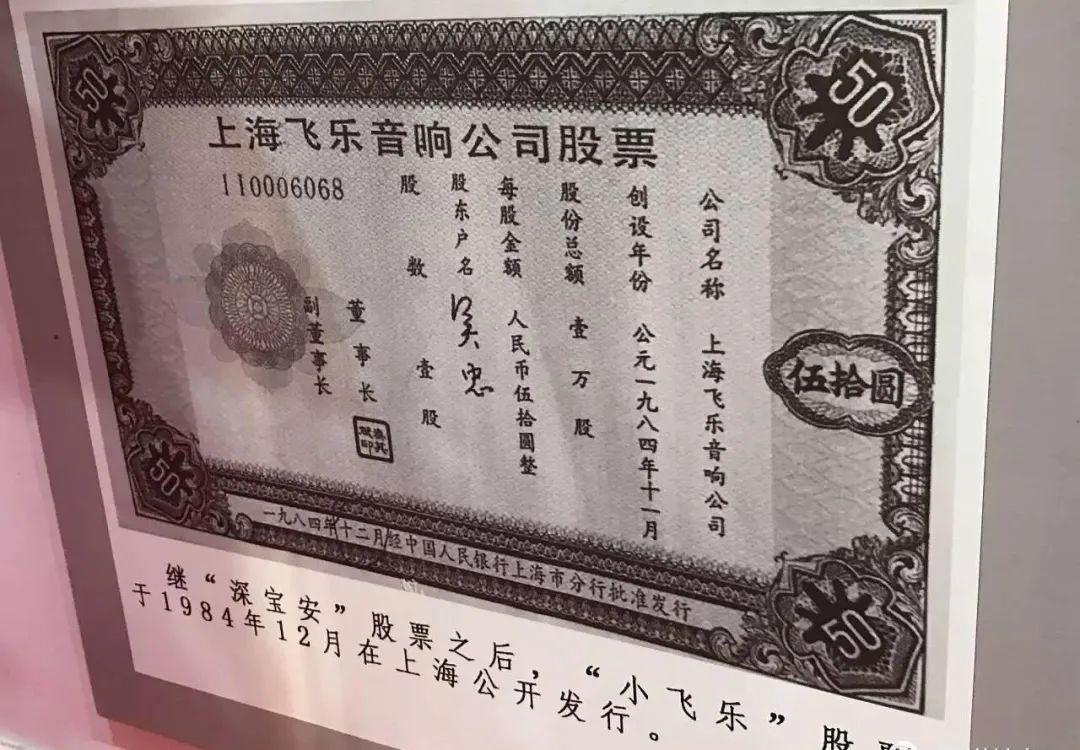 50
50
上海飞乐音响公司股票
110006068
公司名称 上海飞乐音响公司
创设年份 公元一九八四年十一月
股份总额 壹万股
每股金额 人民币伍拾圆整
股东户名
股数 壹股
董事长
副董事长
伍拾圆
50
50
一九八四年十二月经中国人民银行上海市分行批准发行
继“深宝安”股票之后，“小飞乐”股
于1984年12月在上海公开发行。